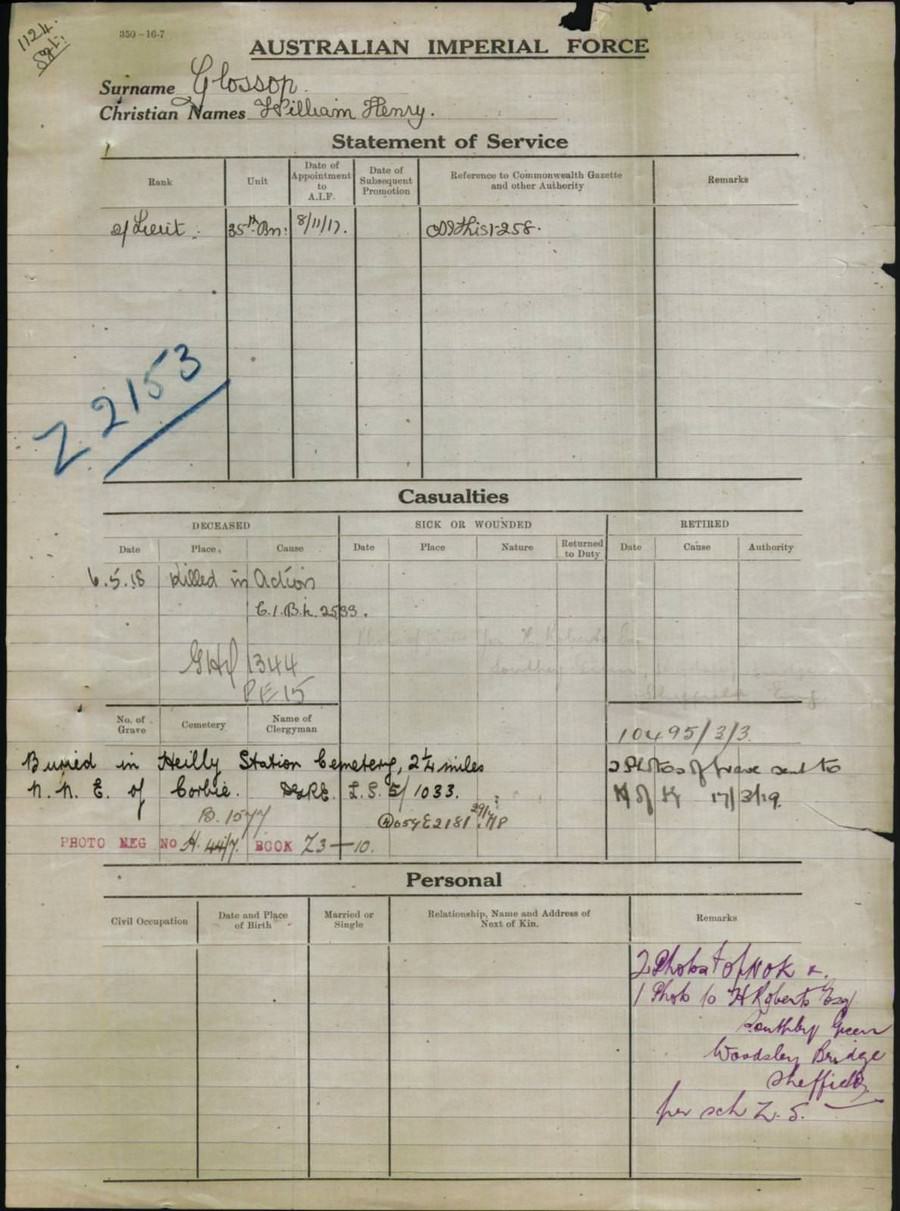 1124
350-16-7
AUSTRALIAN IMPERIAL FORCE
Surname Glossop.
Christian Names William Henry.
Statement of Service
Rank
Unit
Date of Appointment to A.I.F.
Date of Subsequent Promotion
Reference to Commonwealth Gazette and other Authority
Remarks
2/Lieut.
35th Bn.
8/11/17.
Z 2153
Casualties
DECEASED
SICK OR WOUNDED
RETIRED
Date
Place
Cause
Date
Place
Nature
Returned to Duty
Date
Cause
Authority
6.5.18 Killed in Action
1344
PE 15
No. of Grave
Cemetery
Name of Clergyman
10495/3/3
Buried in Heilly Station Cemetery, 2¼ miles
N. N. E. of Corbie. L.S. 5/1033.
2 Photos of Grave sent to
N of K 17/3/19.
B. 1577
PHOTO NEG NO H. 44/7. BOOK Z3-10.
Personal
Civil Occupation
Date and Place of Birth
Married or Single
Relationship, Name and Address of Next of Kin.
Remarks
2 Photos of NOK &
1 Photo to H Roberts Esq
Green
Bridge
Sheffield
per sch Z. S.